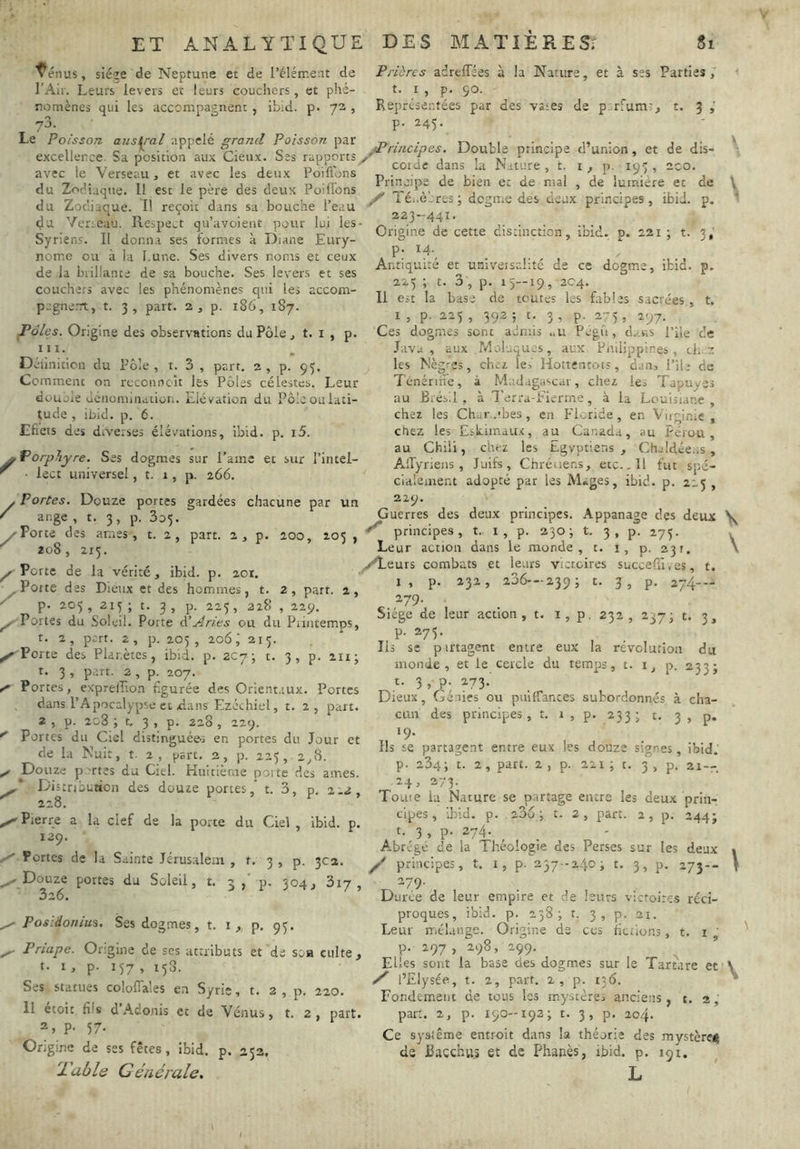 ET ANALYTIQUE DES MATIÈRES. 81
Vénus, siége de Neptune et de l'élément de
l'Air. Leurs levers et leurs couchers, et phé-
nomènes qui les accompagnent, ibid. p. 72,
73.
Le Poisson austral appelé grand Poisson par
excellence. Sa position aux Cieux. Ses rapports
avec le Verseau, et avec les deux Poissons
du Zodiaque. Il est le père des deux Poissons
du Zodiaque. Il reçoit dans sa bouche l'eau
du Verseau. Respect qu'avoient pour lui les
Syriens. Il donna ses formes à Diane Eury-
nome ou à la Lune. Ses divers noms et ceux
de la brillante de sa bouche. Ses levers et ses
couchers avec les phénomènes qui les accom-
pagnent, t. 3, part. 2, p. 186, 187.
Pôles. Origine des observations du Pôle, t. 1, p.
111.
Définition du Pôle, t. 3, part. 2, p. 95.
Comment on reconnoît les Pôles célestes. Leur
double dénomination. Elévation du Pôle ou lati-
tude, ibid. p. 6.
Effets des diverses élévations, ibid. p. 15.
Porphyre. Ses dogmes sur l'ame et sur l'intel-
lect universel, t. 1, p. 266.
Portes. Douze portes gardées chacune par un
ange, t. 3, p. 305.
Porte des ames, t. 2, part. 2, p. 200, 205,
208, 215.
Porte de la vérité, ibid. p. 201.
Porte des Dieux et des hommes, t. 2, part. 2,
p. 205, 215; t. 3, p. 225, 228, 229.
Portes du Soleil. Porte d'Aries ou du Printemps,
t. 2, part. 2, p. 205, 206, 215.
Porte des Planètes, ibid. p. 207; t. 3, p. 211;
t. 3, part. 2, p. 207.
Portes, expression figurée des Orientaux. Portes
dans l'Apocalypse et dans Ezéchiel, t. 2, part.
2, p. 208; t. 3, p. 228, 229.
Portes du Ciel distinguées en portes du Jour et
de la Nuit, t. 2, part. 2, p. 225, 228.
Douze portes du Ciel. Huitième porte des ames.
Distribution des douze portes, t. 3, p. 222,
228.
Pierre a la clef de la porte du Ciel, ibid. p.
129.
Portes de la Sainte Jérusalem, t. 3, p. 302.
Douze portes du Soleil, t. 3, p. 304, 317,
326.
Posidonius. Ses dogmes, t. 1, p. 95.
Priape. Origine de ses attributs et de son culte,
t. 1, p. 157, 158.
Ses statues colossales en Syrie, t. 2, p. 220.
Il étoit fils d'Adonis et de Vénus, t. 2, part.
2, p. 57.
Origine de ses fêtes, ibid. p. 252.
Table Générale.
Prières adressées à la Nature, et à ses Parties,
t. 1, p. 90.
Représentées par des vases de parfums, t. 3,
p. 245.
Principes. Double principe d'union, et de dis-
corde dans la Nature, t. 1, p. 195, 200.
Principe de bien et de mal, de lumière et de
Ténèbres; dogme des deux principes, ibid. p.
223--441.
Origine de cette distinction, ibid. p. 221; t. 3,
p. 14.
Antiquité et universalité de ce dogme, ibid. p.
225; t. 3, p. 15--19, 204.
Il est la base de toutes les fables sacrées, t.
1, p. 225, 392; t. 3, p. 275, 297.
Ces dogmes sont admis au Pégu, dans l'île de
Java, aux Moluques, aux Philippines, chez
les Nègres, chez les Hottentots, dans l'île de
Ténériffe, à Madagascar, chez les Tapuyes
au Brésil, à Terra-Fierme, à la Louisiane,
chez les Charaïbes, en Floride, en Virginie,
chez les Eskimaux, au Canada, au Pérou,
au Chili, chez les Egyptiens, Chaldéens,
Assyriens, Juifs, Chrétiens, etc. Il fut spé-
cialement adopté par les Mages, ibid. p. 225,
229.
Guerres des deux principes. Appanage des deux
principes, t. 1, p. 230; t. 3, p. 275.
Leur action dans le monde, t. 1, p. 231.
Leurs combats et leurs victoires successives, t.
1, p. 232, 236---239; t. 3, p. 274---
279.
Siége de leur action, t. 1, p. 232, 237; t. 3,
p. 275.
Ils se partagent entre eux la révolution du
monde, et le cercle du temps, t. 1, p. 233;
t. 3, p. 273.
Dieux, Génies ou puissances subordonnés à cha-
cun des principes, t. 1, p. 233; t. 3, p.
19.
Ils se partagent entre eux les douze signes, ibid.
p. 234; t. 2, part. 2, p. 221; t. 3, p. 21--
24, 273.
Toute la Nature se partage entre les deux prin-
cipes, ibid. p. 236; t. 2, part. 2, p. 244;
t. 3, p. 274.
Abrégé de la Théologie des Perses sur les deux
principes, t. 1, p. 237--240; t. 3, p. 273--
279.
Durée de leur empire et de leurs victoires réci-
proques, ibid. p. 238; t. 3, p. 21.
Leur mélange. Origine de ces fictions, t. 1,
p. 297, 298, 299.
Elles sont la base des dogmes sur le Tartare et
l'Elysée, t. 2, part. 2, p. 136.
Fondement de tous les mystères anciens, t. 2,
part. 2, p. 190--192; t. 3, p. 204.
Ce système entroit dans la théorie des mystères
de Bacchus et de Phanès, ibid. p. 191.
L